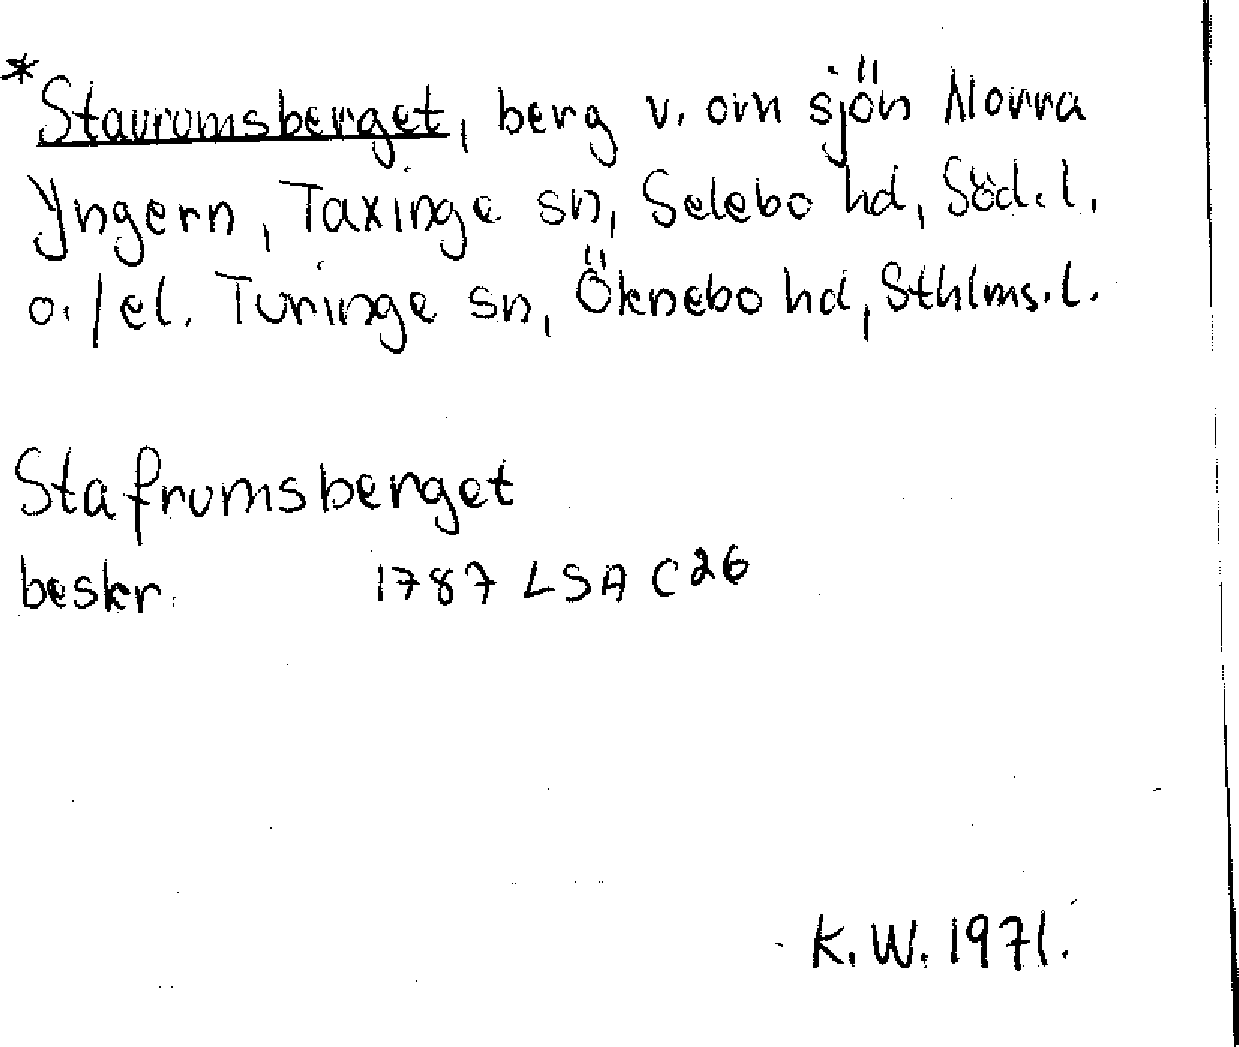 *Stavrumsberget, berg v. om sjön Norra
Yngern, Taxinge sn, Selebo hd, Söd. l.
o./el. Turinge sn, Öknebo hd, Sthlms. l.
Stafrumsberget
beskr. 1787 LSA C26
K. W. 1971.